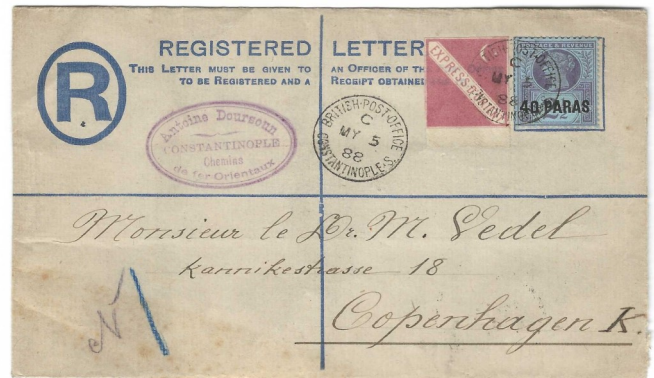 REGISTERED LETTER
THIS LETTER MUST BE GIVEN TO AN OFFICER OF TH
TO BE REGISTERED AND A RECEIPT OBTAINED
R
Antoine Doursoun
CONSTANTINOPLE
Chemins
de fer Orientaux
BRITISH-POST-OFFICE
C
MY 5
88
CONSTANTINOPLE-S.
EXPRESS
C
MY 5
88
POSTAGE & REVENUE
40 PARAS
Monsieur le Dr. M. Vedel
Kannikestrasse 18
Copenhagen K.
N